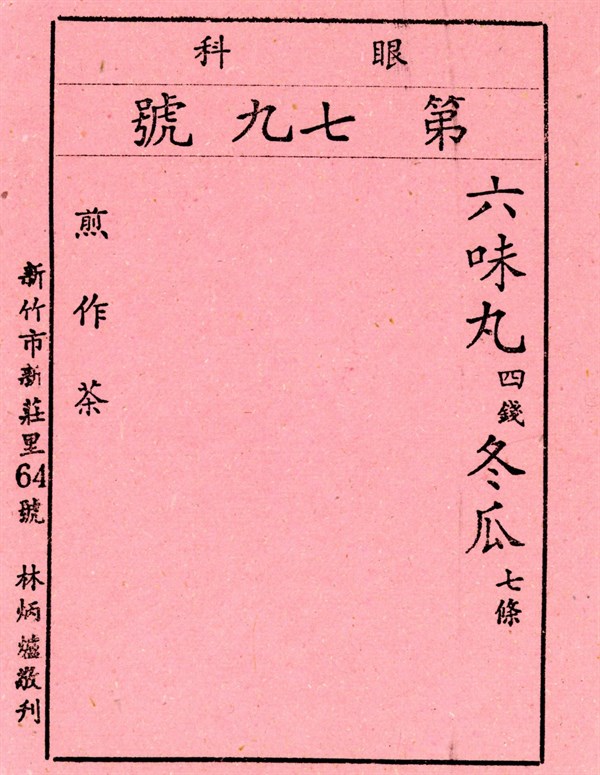 眼科
第七九號
六味丸四錢冬瓜七條
煎作茶
新竹市新莊里64號 林炳爐敬刊